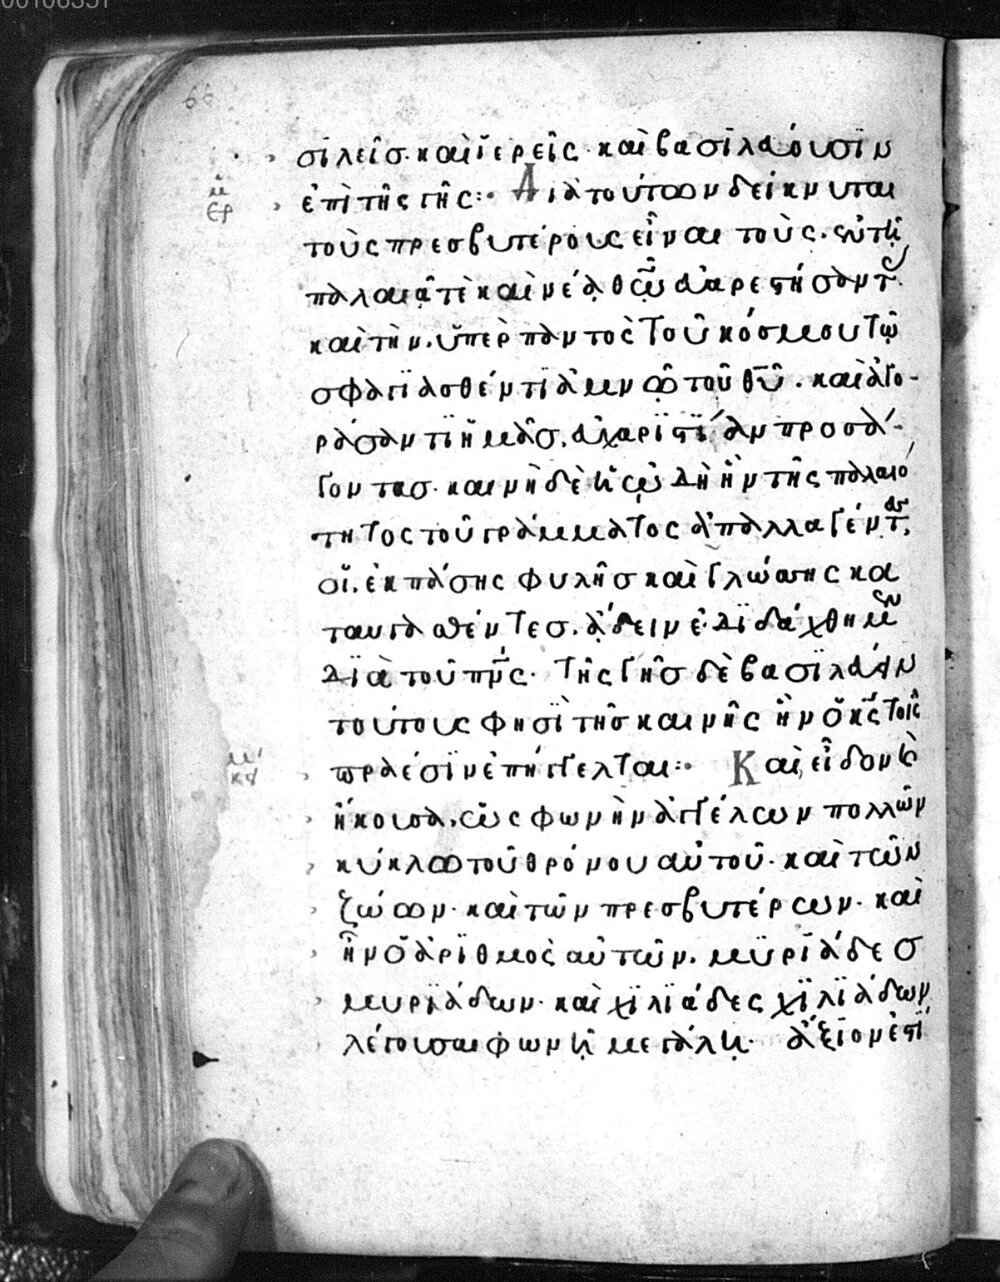 66
σϊλεῖσ· καὶ ἱερεῖς· καὶ βασϊλεύουσϊν
ἐπὶ τῆς γῆς:· Διὰ τούτων δείκνυται
ἑρ
τοὺς πρεσβυτέρους εἶναι τοὺς. ἐν τῆ
παλαιᾶ τὲ καὶ νέα θῶ εὐαρεστήσαντ
καὶ τὴν. ὑπὲρ παντὸς τοῦ κόσμου τῶ
σφαγϊασθέντϊ ἀμνῶ τοῦ θῦ. καὶ ἀγο-
ράσαντϊ ἡμᾶσ. εὐχαρϊστϊαν προσά-
γοντασ· καινὴ δὲ ἡ ὠδὴ ἣν τῆς παλαιό
τητος τοῦ γράμματος ἀπαλλαγέντ
οἵ. ἐκ πάσης φυλῆσ καὶ γλώσσης κα
ταυγασθέντεσ. ἄδειν ἐδϊδάχθημεν
δϊὰ τοῦ πνς· τῆς γῆσ δὲ βασϊλεύειν
τούτους φησὶ τῆσ καινῆς ἣν ὁ κς τοῖς
πραέσϊν ἐπήγγελται:· Καὶ εἶδον καὶ
κγ
ἤκουσα. ὡς φωνὴν ἀγγέλων πολλῶν
κύκλω τοῦ θρόνου αὐτοῦ· καὶ τῶν
ζώων· καὶ τῶν πρεσβυτέρων· καὶ
ἦν ὁ ἀρϊθμὸς αὐτῶν. μυρϊάδεσ
μυρϊάδων· καὶ χϊλϊάδες χϊλϊάδων
λέγουσαι φωνῆ μεγάλη· ἄξϊον ἐστϊ